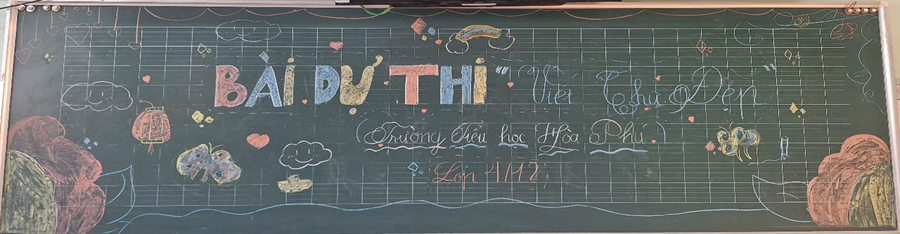 BÀI DỰ THI "Viết Chữ Đẹp"
(Trường Tiểu học Hòa Phú)
Lớp 1/12